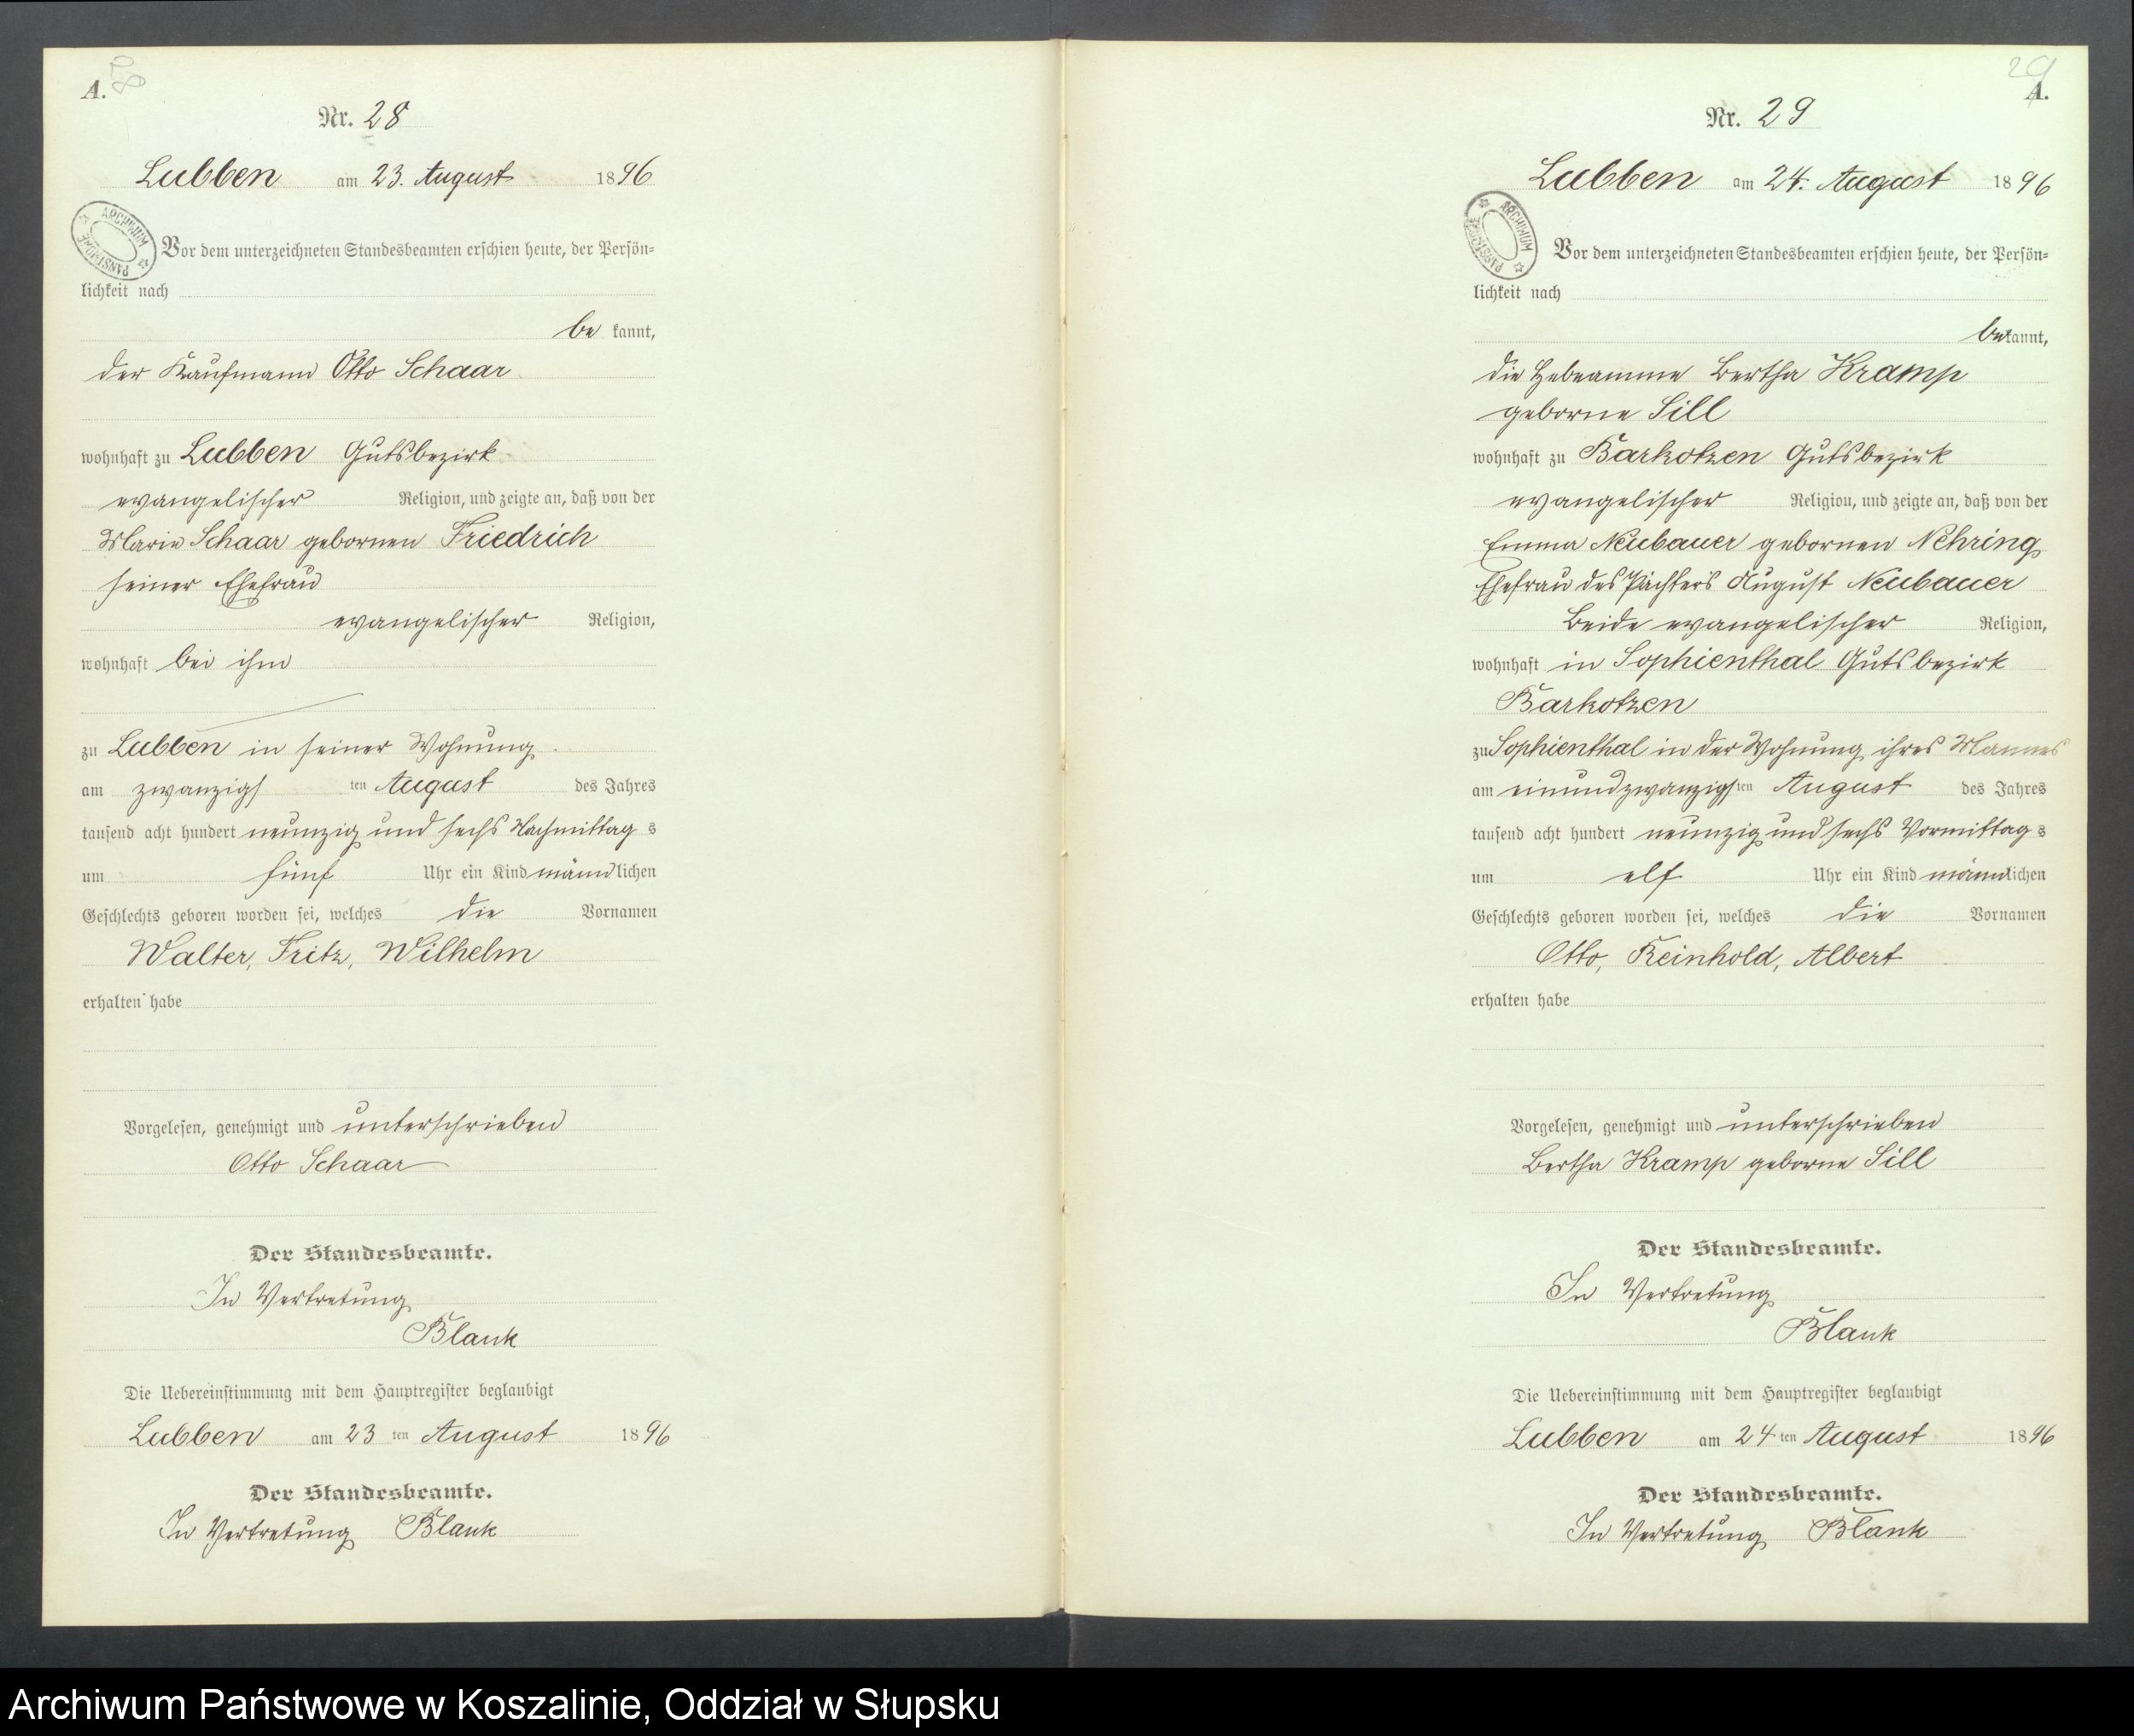 A. 28
Nr. 28
Lubben am 23. August 1896
ARCHIWUM PAŃSTWOWE
Vor dem unterzeichneten Standesbeamten erschien heute, der Persön-
lichkeit nach
be kannt,
der Kaufmann Otto Schaar
wohnhaft zu Lubben Gutsbezirk
evangelischer Religion, und zeigte an, daß von der
Marie Schaar gebornen Friedrich
seiner Ehefrau
evangelischer Religion,
wohnhaft bei ihm
zu Lubben in seiner Wohnung
am zwanzigsten August des Jahres
tausend acht hundert neunzig und sechs Nachmittags
um fünf Uhr ein Kind männlichen
Geschlechts geboren worden sei, welches die Vornamen
Walter, Fritz, Wilhelm
erhalten habe
Vorgelesen, genehmigt und unterschrieben
Otto Schaar
Der Standesbeamte.
In Vertretung
Blank
Die Uebereinstimmung mit dem Hauptregister beglaubigt
Lubben am 23 ten August 1896
Der Standesbeamte.
In Vertretung Blank
29
A.
Nr. 29
Lubben am 24. August 1896
ARCHIWUM PAŃSTWOWE
Vor dem unterzeichneten Standesbeamten erschien heute, der Persön-
lichkeit nach
bekannt,
die Hebeamme Bertha Kramp
geborne Sill
wohnhaft zu Barkotzen Gutsbezirk
evangelischer Religion, und zeigte an, daß von der
Emma Neubauer gebornen Nehring
Ehefrau des Pächters August Neubauer
Beide evangelischer Religion,
wohnhaft in Sophienthal Gutsbezirk
Barkotzen
zu Sophienthal in der Wohnung ihres Mannes
am einundzwanzigsten August des Jahres
tausend acht hundert neunzig und sechs Vormittags
um elf Uhr ein Kind männlichen
Geschlechts geboren worden sei, welches die Vornamen
Otto, Reinhold, Albert
erhalten habe
Vorgelesen, genehmigt und unterschrieben
Bertha Kramp geborne Sill
Der Standesbeamte.
In Vertretung
Blank
Die Uebereinstimmung mit dem Hauptregister beglaubigt
Lubben am 24 ten August 1896
Der Standesbeamte.
In Vertretung Blank
Archiwum Państwowe w Koszalinie, Oddział w Słupsku